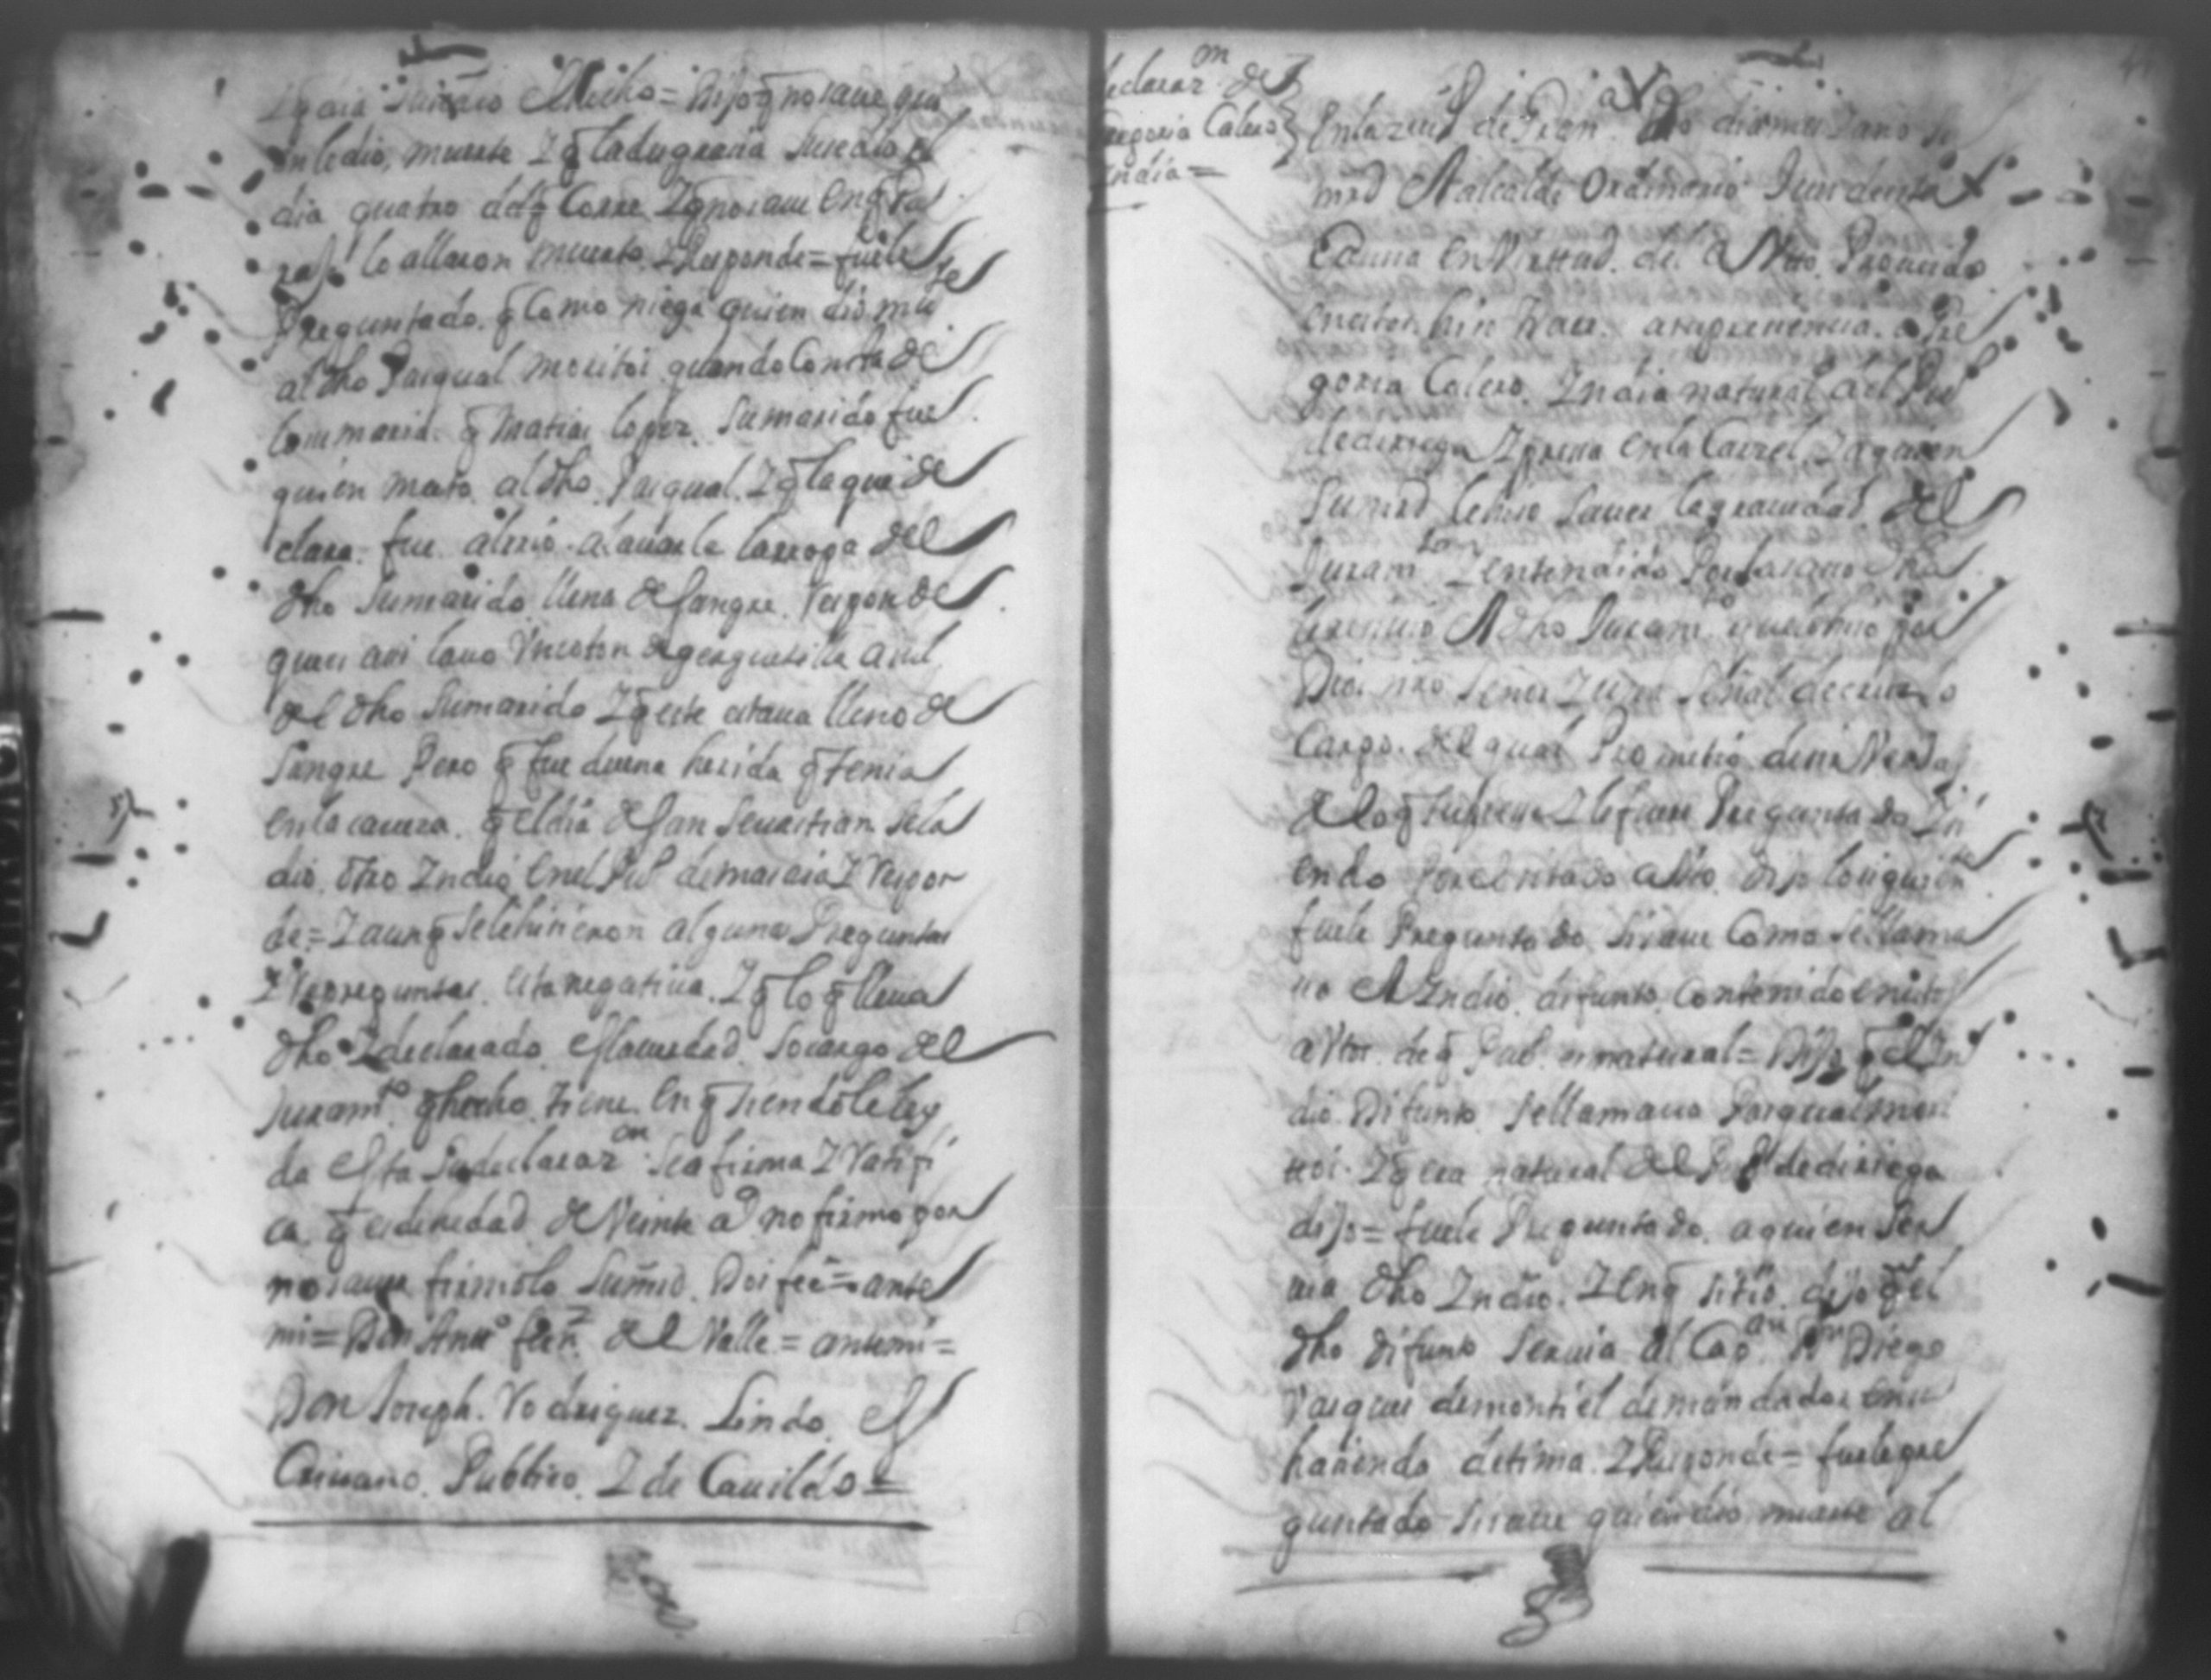 dijo q̃ no saue quien
le dio, muerte Y q̃ la desgracia susedio el
dia quatro del q̃ Corre Y q̃ no saue en q̃ Pa
raje lo allaron muerto. Y Responde = fuele
Preguntado. q̃ Como niega quien dio muerte
al dho Pasqual moritos quando Consta de
q̃ Matias lopez. Su marido fue
quien mato al dho. Pasqual. Y q̃ la que de
clara. fue al rio. a lauarle la rropa del
dho Su marido llena de sangre. Responde
que si lauo Un coton de gerguetilla asul
del dho Su marido Y q̃ este estaua lleno de
Sangre Pero q̃ fue de una herida q̃ tenia
en la caueza. q̃ el dia de san Seuastian se la
dio. otro Yndio en el Pueo de masaia Y Respon
de = Y aunq̃ se le hisieron algunas Preguntas
Y Rrepreguntas. esta negatiua. Y q̃ lo q̃ lleua
dho Y declarado. es la uerdad. So cargo del
Juramto q̃ hecho. tiene. en q̃ siendole ley
da esta su declarazon se afirma Y Ratifi
ca. q̃ es de hedad de Veinte as no firmo por
no sauer firmolo Su md. Doi fee = ante
mi = Don Anto ferz del Valle = ante mi =
Don Joseph. Rodriguez. Lindo. Es
Criuano. Publico. Y de Cauildo =
declarazn de
Gregoria Calero
India =
En la ziud de Gran.a dho dia mes Y año Su
mrd El alcalde Ordinario
Causa en Virttud. del Autto. Proueido
en estos hiso traer. a su presencia. a Gre
goria Calero. Yndia natural del Pueo
de diriega Y presa en la Carzel. Y a quien
Su mrd le hiso sauer la grauedad del
Juramto Y entendido Por la susodha
El dho Juramto que lo hiso por
Dios nro Señor Y una Señal de cruz so
Cargo. del qual Prometio desir Verdad
de lo q̃ supiere Y le fuere Preguntado Y si
endo Por el citado autto. dijo lo siguiente
fuele Preguntado Si saue Como se llama
ua El Yndio. difunto. Contenido en estos
auttos. de q̃ Pueo era natural = Dijo q̃ el Yn
dio Difunto. se llamaua Pasqual mori
tos. Y q̃ era natural del Pueo de diriega
dijo = fuele Preguntado. a quien Ser
uia dho Yndio. Y en q̃ sitio. dijo q̃ el
dho difunto Seruia al Capan Dn Diego
Vasques de montiel de mandador en su
hasienda de tisma. Y Responde = fuele pre
guntado Si saue quien dio muerte al